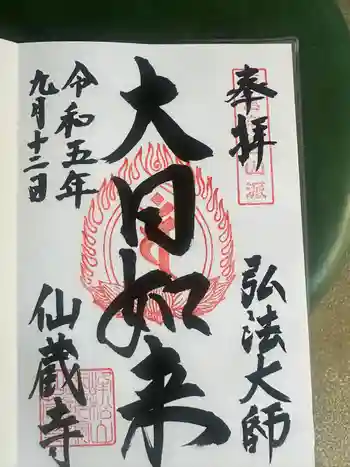 奉拝
弘法大師
大日如来
令和五年
九月十二日
仙蔵寺